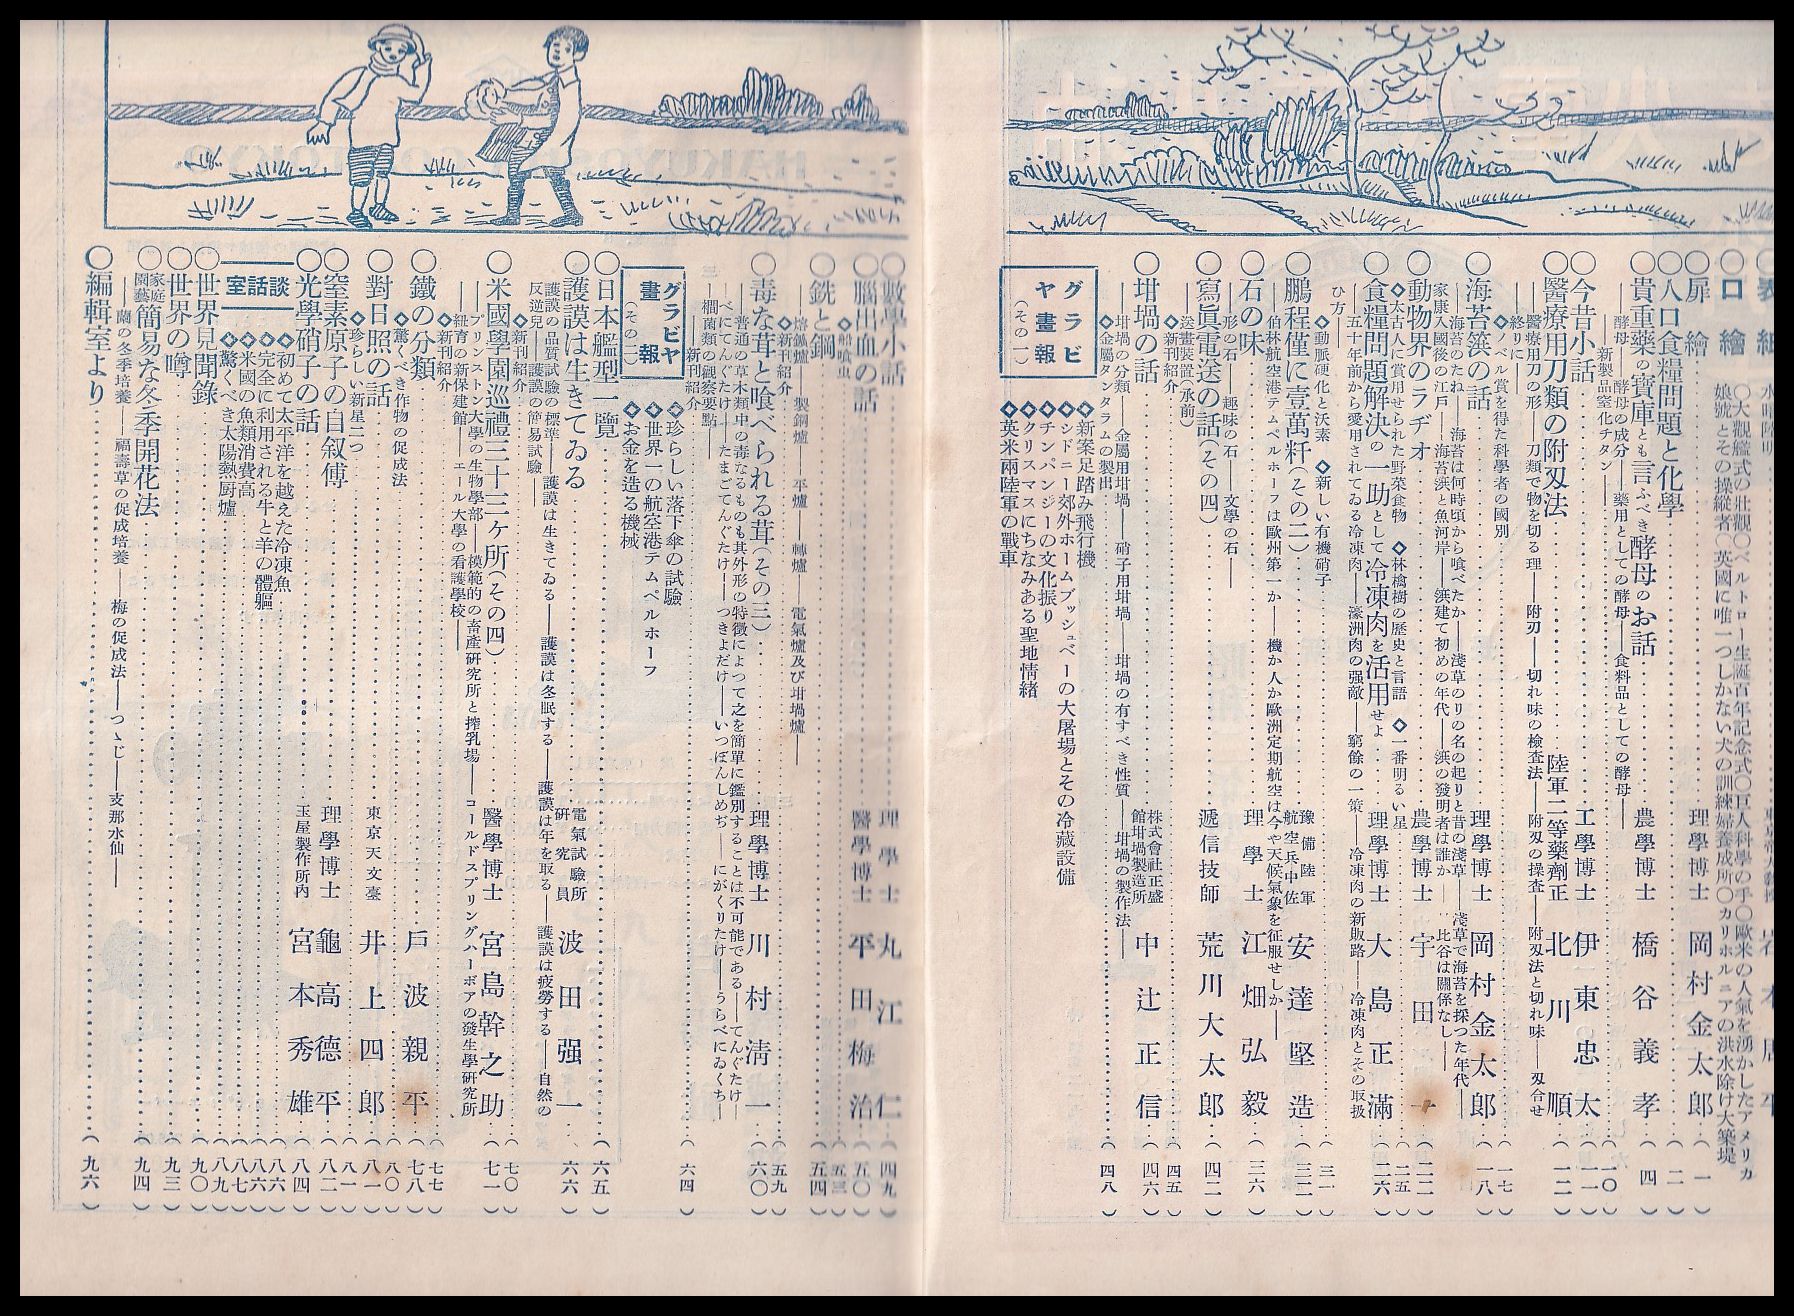 ○口繪
○大觀艦式の壯觀○ベルトロー生誕百年記念式○巨人科學の手○歐米の人氣を湧かしたアメリカ
娘號とその操縱者(英國に唯一つしかない犬の訓練婦養成所○カリホルニアの洪水除け大築堤
○扉繪 理學博士 岡村金太郎 (一)
○人口食糧問題と化學 (二)
○貴重藥の寶庫とも言ふべき酵母のお話 農學博士 橋谷義孝 (四)
酵母――酵母の成分――藥用としての酵母――食料品としての酵母――
新製品窒化チタン (一〇)
○今昔小話 工學博士 伊東忠太 (一一)
○醫療用刀類の附刄法 陸軍二等藥劑正 北川順 (一二)
醫療用刀の形――刀類で物を切る理――附刃――切れ味の檢査法――附刄の操査――附刄法と切れ味――刄合せ
終りに――
◇ノベル賞を得た科學者の國別 (一七)
○海苔篊の話 理學博士 岡村金太郎 (一八)
海苔のたね――海苔は何時頃から喰べたか――淺草のりの名の起りと昔の淺草――淺草で海苔を採つた年代――
家康入國後の江戶――海苔浜と魚河岸――浜建て初めの年代――浜の發明者は誰か――比谷は關係なし――
○動物界のラヂオ 農學博士 宇田一 (二二)
◇太古人に賞用せられた野菜食物 ◇林檎樹の歷史と言語 ◇一番明るい星 (二五)
○食糧問題解決の一助として冷凍肉を活用せよ 理學博士 大島正滿 (二六)
五十年前から愛用されてゐる冷凍肉――濠洲肉の强敵――窮餘の一策――冷凍肉の新販路――冷凍肉とその取扱
ひ方――
◇動脈硬化と沃素 ◇新しい有機硝子 (三一)
○鵬程僅に壹萬粁(その二) 豫備陸軍航空兵中佐 安達堅造 (三二)
伯林航空港テムペルホーフは歐州第一か――機か人か歐洲定期航空は今や天候氣象を征服せしか――
○石の味 理學士 江畑弘毅 (三六)
形の石――趣味の石――文學の石――
○寫眞電送の話(その四) 遞信技師 荒川大太郎 (四二)
送畫裝置(承前)
◇新刊紹介 (四五)
○坩堝の話 株式會社正盛館坩堝製造所 中辻正信 (四六)
坩堝の分類――金屬用坩堝――硝子用坩堝――坩堝の有すべき性質――坩堝の製作法――
◇金屬タンタラムの製出 (四八)
グラビヤ畫報(その一)
◇新案足踏み飛行機
◇シドニー郊外ホームブッシュベーの大屠場とその冷藏設備
◇チンパンジーの文化振り
◇クリスマスにちなみある聖地情緖
◇英米兩陸軍の戰車
○數學小話 理學士 丸江仁 (四九)
○腦出血の話 醫學博士 平田梅治 (五〇)
◇船喰虫 (五三)
○銑と鋼 (五四)
熔鑛爐――製鋼爐――平爐――轉爐――電氣爐及び坩堝爐――
◇新刊紹介 (五九)
○毒な茸と喰べられる茸(その三) 理學博士 川村淸一 (六〇)
普通の草木類中の毒なるものも其外形の特徵によつて之を簡單に鑑別することは不可能である――てんぐたけ
べにてんぐたけ――たまごてんぐたけ――つきよだけ――いつぽんしめぢ――にがくりたけ――うらべにゐくち――
櫚菌類の觀察要點――
◇新刊紹介 (六四)
グラビヤ畫報(その二)
◇珍らしい落下傘の試驗
◇世界一の航空港テムペルホーフ
◇お金を造る機械
○日本艦型一覽 (六五)
○護謨は生きてゐる 電氣試驗所硏究員 波田强一 (六六)
護謨の品質試驗の標準――護謨は生きてゐる――護謨は冬眠する――護謨は年を取る――護謨は疲勞する――自然の
反逆兒――護謨の簡易試驗――
◇新刊紹介 (七〇)
○米國學園巡禮三十三ヶ所(その四) 醫學博士 宮島幹之助 (七一)
プリンストン大學の生物學部――模範的の畜產硏究所と搾乳場――コールドスプリングハーボアの發生學硏究所
紐育の新保建館――エール大學の看護學校――
◇新刊紹介 (七七)
○鐵の分類 戶波親平 (七八)
◇驚くべき作物の促成法 (八〇)
○對日照の話 東京天文臺 井上四郎 (八一)
◇珍らしい新星二つ (八一)
○窒素原子の自叙傳 理學博士 龜高德平 (八二)
○光學硝子の話 玉屋製作所內 宮本秀雄 (八四)
談話室
◇初めて太平洋を越えた冷凍魚 (八六)
◇完全に利用される牛と羊の體軀 (八六)
◇米國の魚類消費高 (八七)
◇驚くべき太陽熱厨爐 (八九)
○世界見聞錄 (九〇)
○世界の噂 (九三)
○家庭園藝簡易な冬季開花法 (九四)
――蘭の冬季培養――福壽草の促成培養――梅の促成法――つゝじ――支那水仙――
○編輯室より (九六)